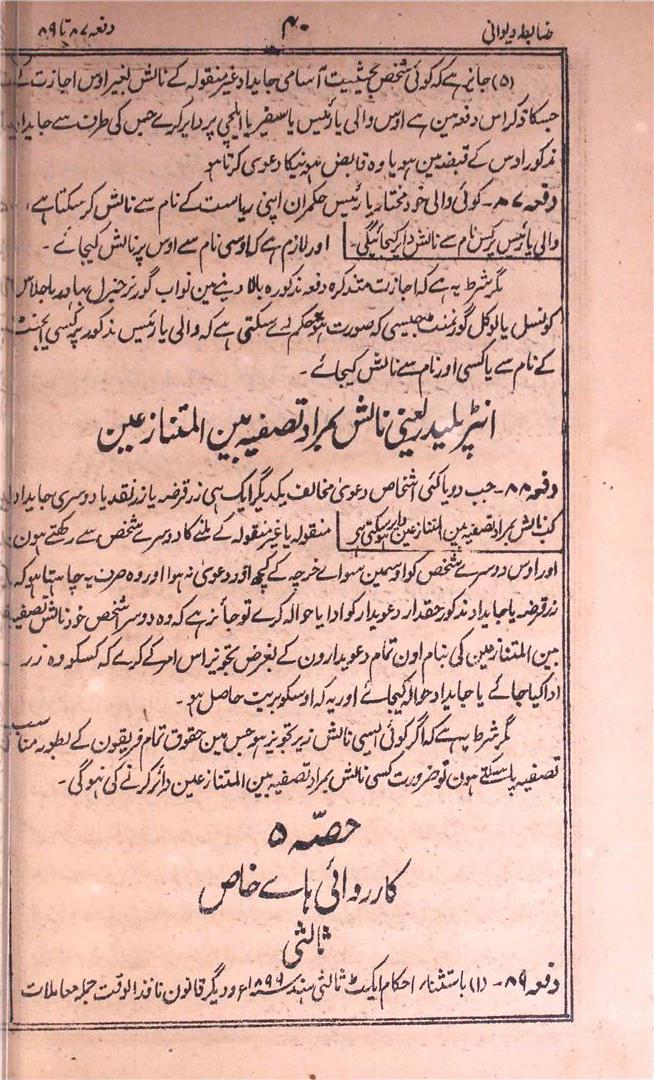 ضابطہ دیوانی
۴۰
دفعہ ۸۷ تا ۸۹
(۵) جائز ہے کہ کوئی شخص بحیثیت آسامی جایداد غیر منقولہ کے نالش بغیر اوس اجازت کے
جسکا ذکر اس دفعہ مین ہے اوس والی یا رئیس یا سفیر یا ایلچی پر دایر کرے جس کی طرف سے جایداد
مذکور اوس کے قبضہ مین ہو یا وہ قابض ہونیکا دعوی کرتا ہو
دفعہ ۸۷۔ کوئی والی خود مختار یا رئیس حکمران اپنی ریاست کے نام سے نالش کر سکتا ہے،
والی یا رئیس پر کس نام سے نالش دائر کیجائیگی۔ اور لازم ہے کہ اوسی نام سے اوس پر نالش کیجائے۔
مگر شرط یہ ہے کہ اجازت متذکرہ دفعہ مذکورہ بالا دینے مین نواب گورنر جنیرل بہادر باجلاس
کونسل یا لوکل گورنمنٹ جیسی کہ صورت ہو حکم دے سکتی ہے کہ والی یا رئیس مذکور پر کسی ایجنٹ
کے نام سے یا کسی اور نام سے نالش کیجائے۔
انٹرپلیڈر یعنی نالش بمراد تصفیہ بین المتنازعین
دفعہ ۸۸۔ جب دو یا کئی اشخاص دعویٰ مخالف یکدیگر ایک ہی زر قرضہ یا زر نقد یا دوسری جایداد
کب نالش بمراد تصفیہ بین المتنازعین دایر ہو سکتی ہے منقولہ یا غیر منقولہ کے ملنے کا دوسرے شخص سے رکھتے ہون
اور اوس دوسرے شخص کو اوسمین سواے خرچہ کے کچھ اور دعویٰ نہ ہو اور وہ صرف یہ چاہتا ہو کہ
زر قرضہ یا جایداد مذکور حقدار دعویدار کو ادا یا حوالہ کرے تو جائز ہے کہ وہ دوسرا شخص خود نالش تصفیہ
بین المتنازعین کی بنام اون تمام دعویدارون کے بغرض تجویز اس امر کے کرے کہ کسکو وہ زر
ادا کیا جائے یا جایداد حوالہ کیجائے اور یہ کہ اوسکو بریت حاصل ہو۔
مگر شرط یہ ہے کہ اگر کوئی ایسی نالش زیر تجویز ہو جس مین حقوق تمام فریقون کے بطور مناسب
تصفیہ پا سکتے ہون تو ضرورت کسی نالش بمراد تصفیہ بین المتنازعین دائر کرنے کی نہوگی۔
حصہ ۵
کارروائی ہاے خاص
ثالثی
دفعہ ۸۹۔ (۱) باستثناء احکام ایکٹ ثالثی ہند سنہ ۱۸۹۹ء و دیگر قانون نافذ الوقت جملہ معاملات